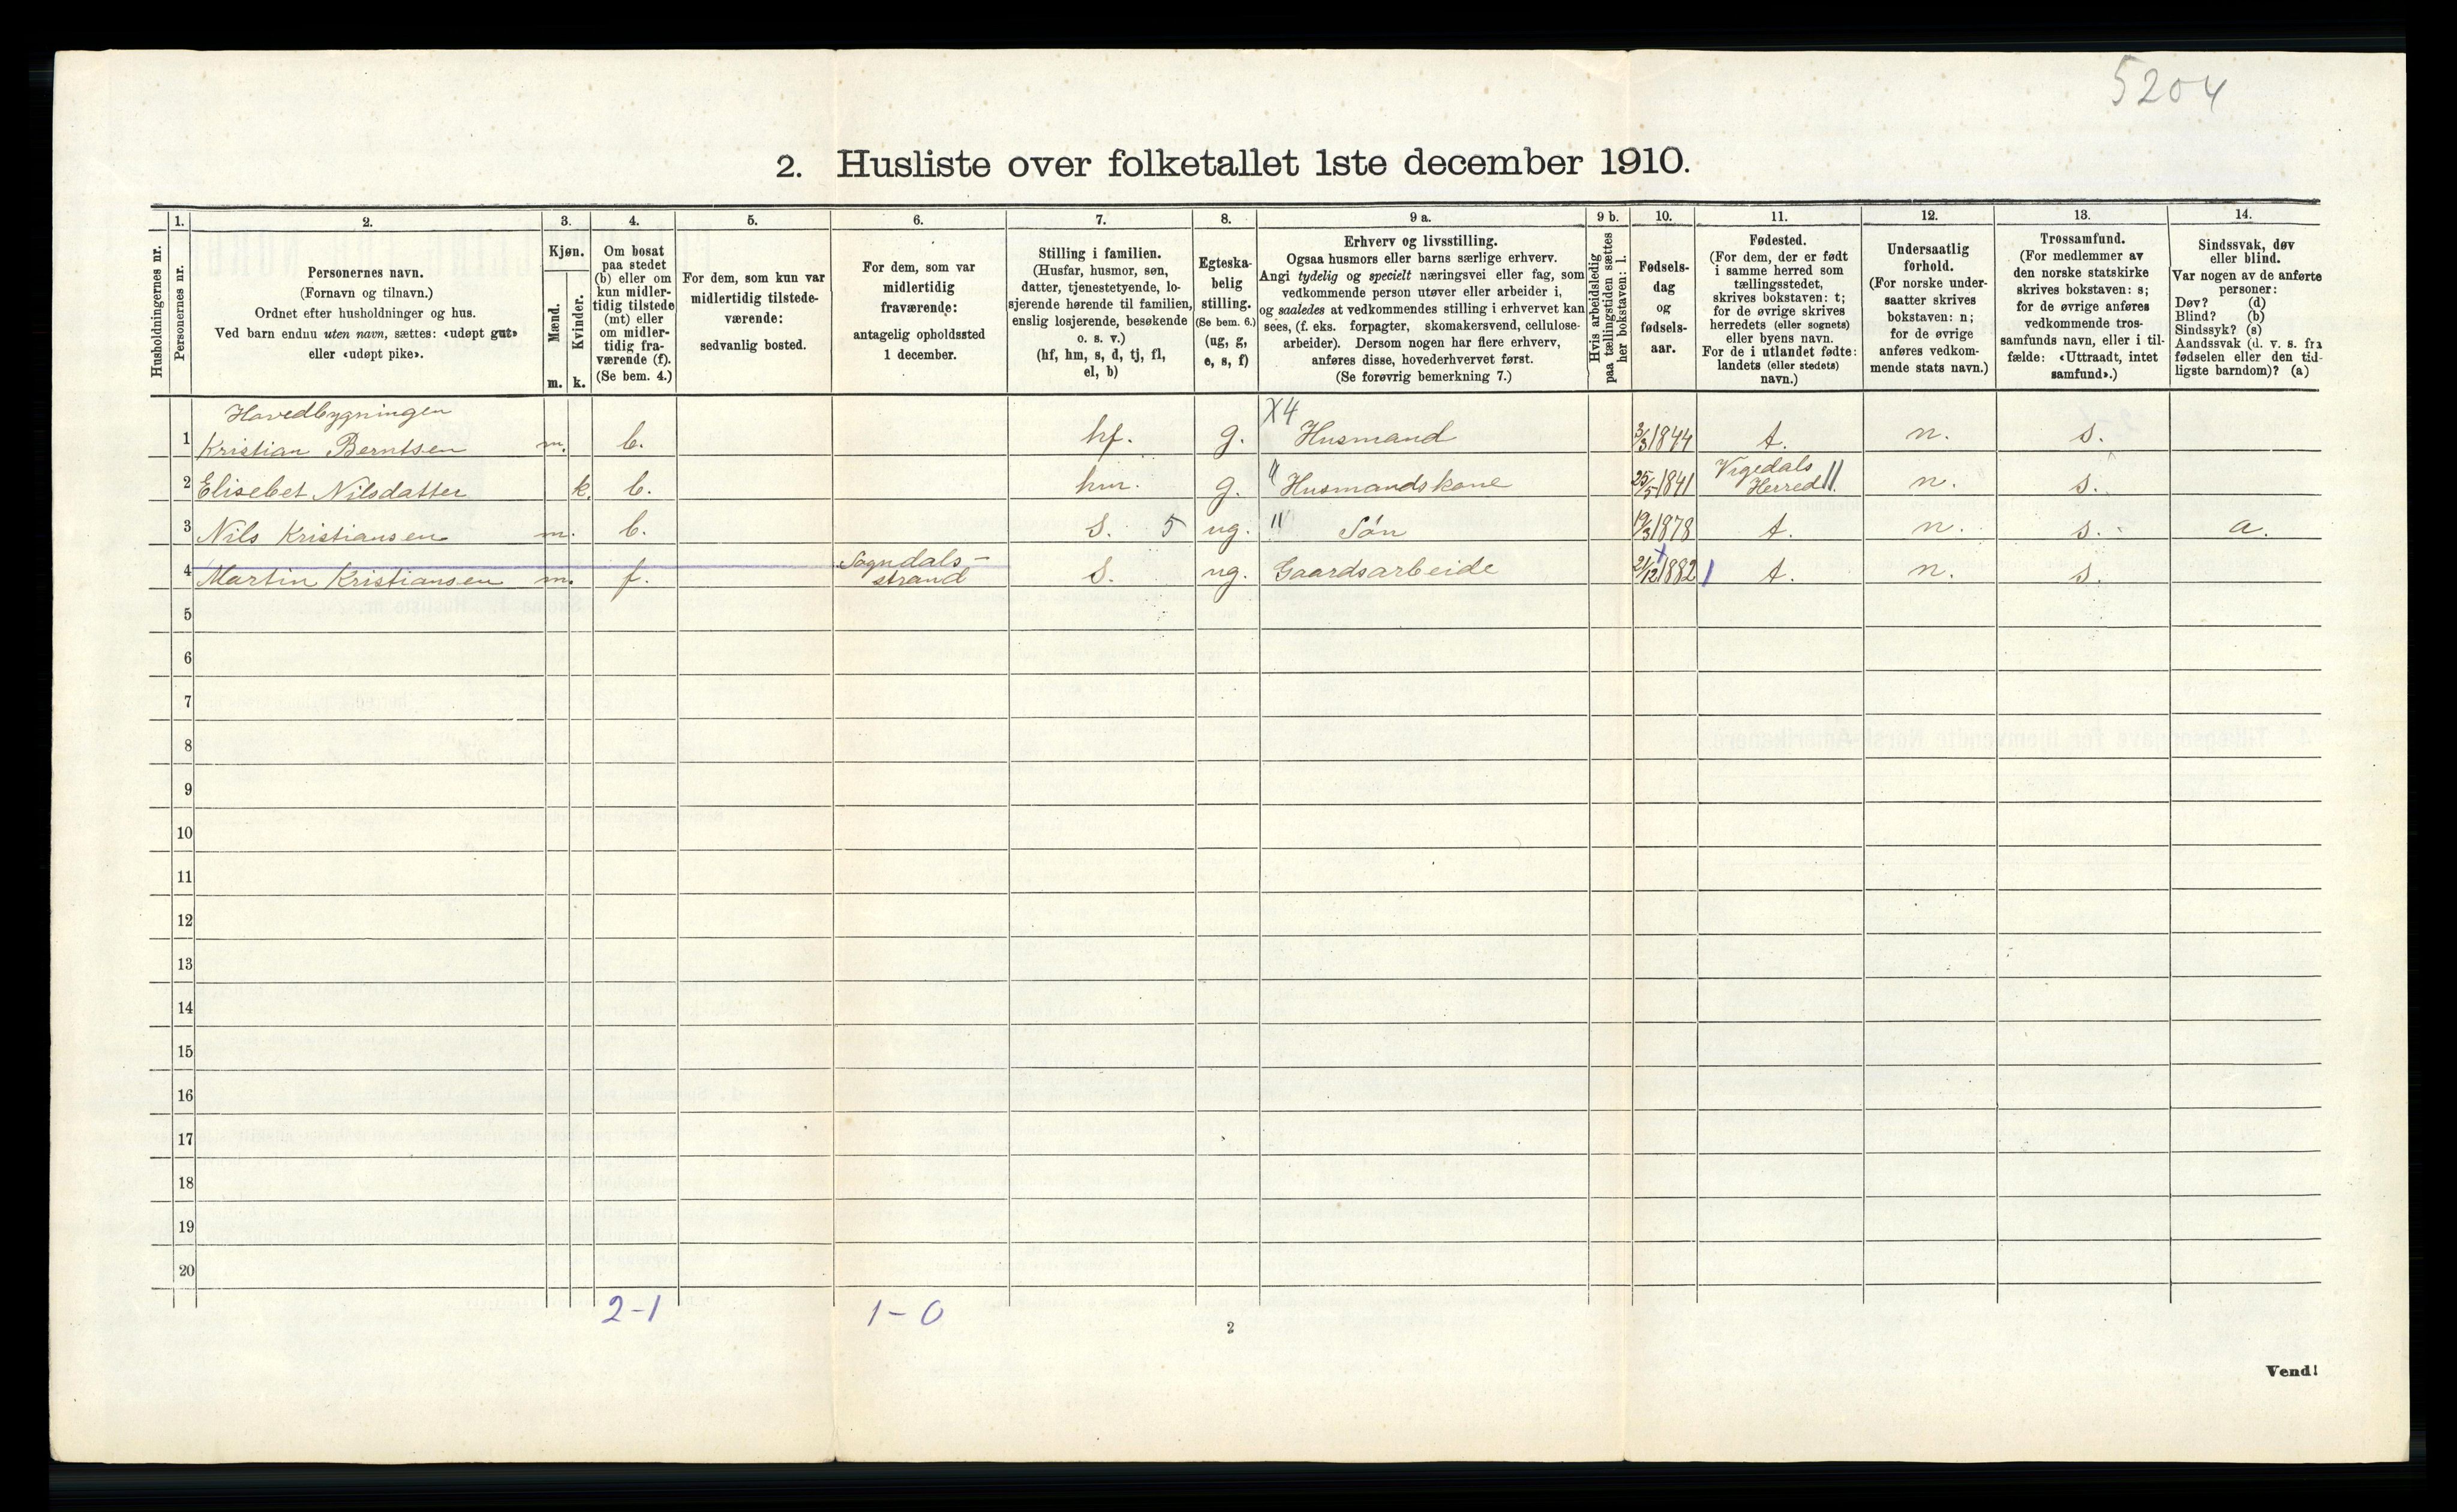 5204
2. Husliste over folketallet 1ste december 1910.
Husholdningernes nr.
1.
Personernes nr.
2.
Personernes navn.
(Fornavn og tilnavn.)
Ordnet efter husholdninger og hus.
Ved barn endnu uten navn, sættes: «udøpt gut»
eller «udøpt pike».
3.
Kjøn.
Mænd.
Kvinder.
m. k.
4.
Om bosat
paa stedet
(b) eller om
kun midler-
tidig tilstede
(mt) eller
om midler-
tidig fra-
værende (f).
(Se bem. 4.)
5.
For dem, som kun var
midlertidig tilstede-
værende:
sedvanlig bosted.
6.
For dem, som var
midlertidig
fraværende:
antagelig opholdssted
1 december.
7.
Stilling i familien.
(Husfar, husmor, søn,
datter, tjenestetyende, lo-
sjerende hørende til familien,
enslig losjerende, besøkende
o. s. v.)
(hf, hm, s, d, tj, fl,
el, b)
8.
Egteska-
belig
stilling.
(Se bem. 6.)
(ug, g,
e, s, f)
9 a.
Erhverv og livsstilling.
Ogsaa husmors eller barns særlige erhverv.
Angi tydelig og specielt næringsvei eller fag, som
vedkommende person utøver eller arbeider i,
og saaledes at vedkommendes stilling i erhvervet kan
sees, (f. eks. forpagter, skomakersvend, cellulose-
arbeider). Dersom nogen har flere erhverv,
anføres disse, hovederhvervet først.
(Se forøvrig bemerkning 7.)
9 b.
Hvis arbeidsledig
paa tællingstiden sættes
her bokstaven: l.
10.
Fødsels-
dag
og
fødsels-
aar.
11.
Fødested.
(For dem, der er født
i samme herred som
tællingsstedet,
skrives bokstaven: t;
for de øvrige skrives
herredets (eller sognets)
eller byens navn.
For de i utlandet fødte:
landets (eller stedets)
navn.)
12.
Undersaatlig
forhold.
(For norske under-
saatter skrives
bokstaven: n;
for de øvrige
anføres vedkom-
mende stats navn.)
13.
Trossamfund.
(For medlemmer av
den norske statskirke
skrives bokstaven: s;
for de øvrige anføres
vedkommende tros-
samfunds navn, eller i til-
fælde: «Uttraadt, intet
samfund».)
14.
Sindssvak, døv
eller blind.
Var nogen av de anførte
personer:
Døv? (d)
Blind? (b)
Sindssyk? (s)
Aandssvak (d. v. s. fra
fødselen eller den tid-
ligste barndom)? (a)
Hovedbygningen
1 Kristian Berntsen m. b. hf. g. X4 Husmand 3/3 1844 t. n. s.
2 Elisebet Nilsdatter k. b. hm. g. " Husmandskone 25/5 1841 Vigedals Herred 11. n. s.
3 Nils Kristiansen m. b. s. 5 ug. " Søn 19/3 1878 t. n. s. a.
4 Martin Kristiansen m. f. Sogndals-strand s. ug. Gaardsarbeide 21/12 1882 t. n. s.
5
6
7
8
9
10
11
12
13
14
15
16
17
18
19
20
2-1 1-0
2
Vend!